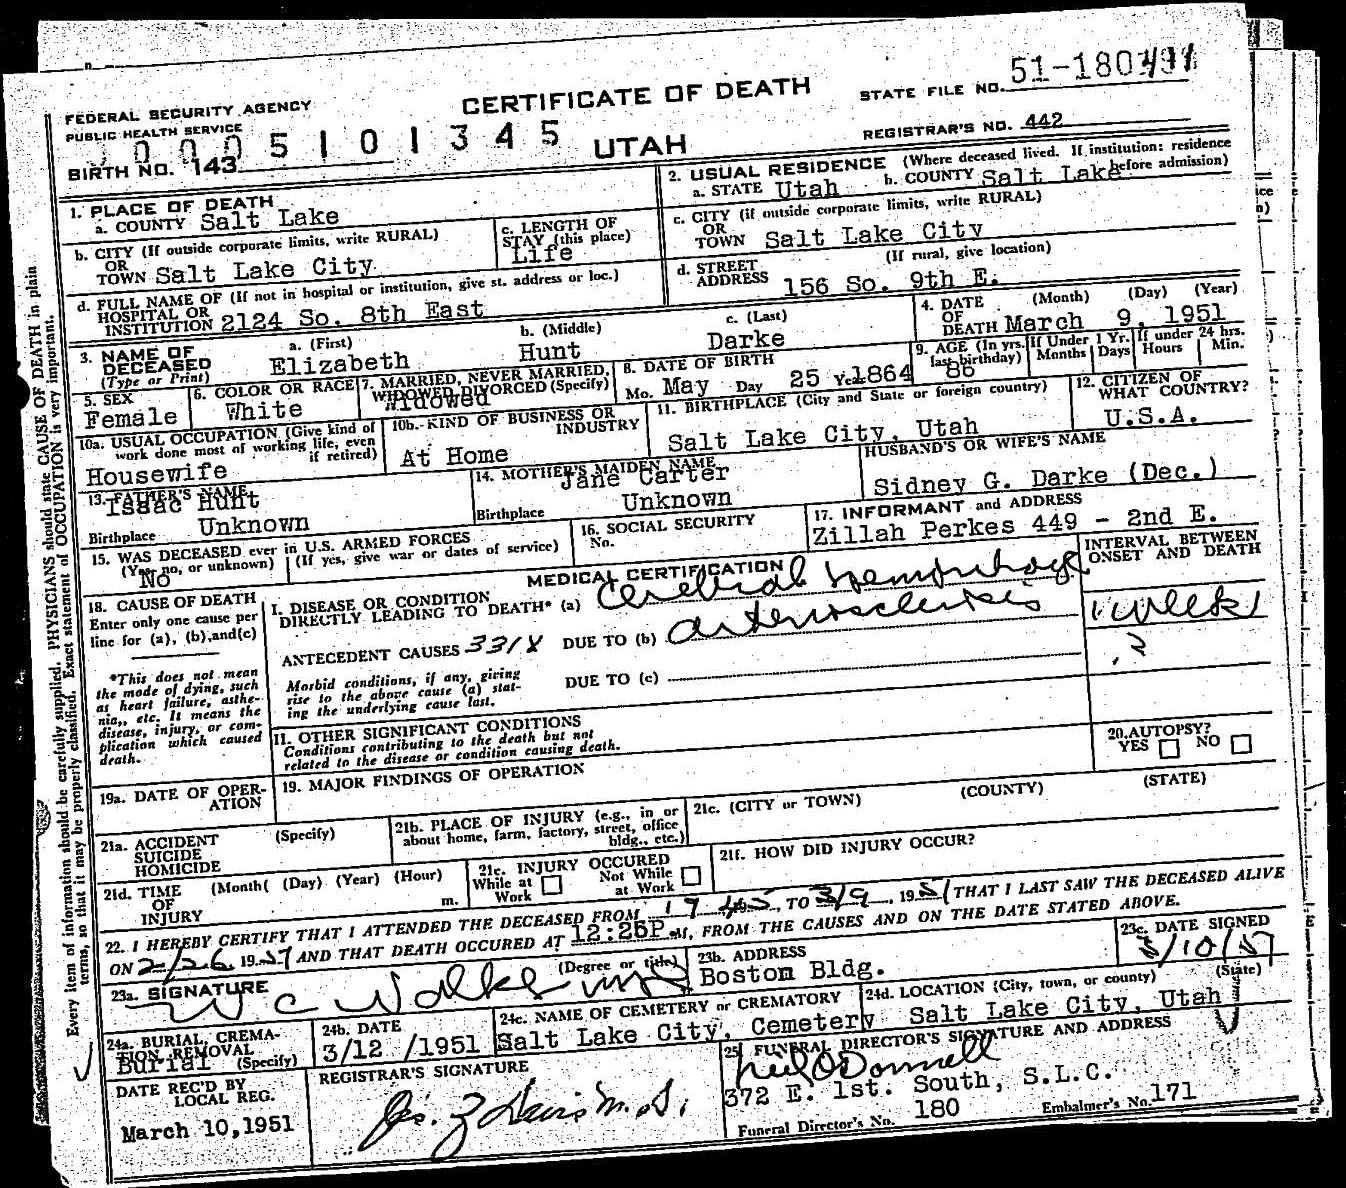 FEDERAL SECURITY AGENCY
PUBLIC HEALTH SERVICE
CERTIFICATE OF DEATH
STATE FILE NO. 51-180
0005101345
BIRTH NO. 143
UTAH
REGISTRAR'S NO. 442
1. PLACE OF DEATH
a. COUNTY Salt Lake
2. USUAL RESIDENCE (Where deceased lived. If institution: residence before admission)
a. STATE Utah b. COUNTY Salt Lake
b. CITY (If outside corporate limits, write RURAL)
OR
TOWN Salt Lake City
c. LENGTH OF
STAY (this place)
Life
c. CITY (if outside corporate limits, write RURAL)
OR
TOWN Salt Lake City
d. FULL NAME OF (If not in hospital or institution, give st. address or loc.)
HOSPITAL OR
INSTITUTION 2124 So. 8th East
d. STREET
ADDRESS (If rural, give location)
156 So. 9th E.
3. NAME OF
DECEASED
(Type or Print)
a. (First)
Elizabeth
b. (Middle)
Hunt
c. (Last)
Darke
4. DATE
OF
DEATH (Month) (Day) (Year)
March 9, 1951
5. SEX
Female
6. COLOR OR RACE
White
7. MARRIED, NEVER MARRIED,
WIDOWED DIVORCED (Specify)
Widowed
8. DATE OF BIRTH
Mo. May Day 25 Year 1864
9. AGE (In yrs. last birthday)
86
If Under 1 Yr.
Months Days
If under 24 hrs.
Hours Min.
10a. USUAL OCCUPATION (Give kind of
work done most of working life, even
if retired)
Housewife
10b. KIND OF BUSINESS OR
INDUSTRY
At Home
11. BIRTHPLACE (City and State or foreign country)
Salt Lake City, Utah
12. CITIZEN OF
WHAT COUNTRY?
U.S.A.
13. FATHER'S NAME
Isaac Hunt
Birthplace Unknown
14. MOTHER'S MAIDEN NAME
Jane Carter
Birthplace Unknown
HUSBAND'S OR WIFE'S NAME
Sidney G. Darke (Dec.)
15. WAS DECEASED ever in U.S. ARMED FORCES
(Yes, no, or unknown) (If yes, give war or dates of service)
No
16. SOCIAL SECURITY
No.
17. INFORMANT and ADDRESS
Zillah Perkes 449 - 2nd E.
MEDICAL CERTIFICATION
INTERVAL BETWEEN
ONSET AND DEATH
18. CAUSE OF DEATH
Enter only one cause per
line for (a), (b),and(c)
*This does not mean
the mode of dying, such
as heart failure, asthe-
nia,, etc. It means the
disease, injury, or com-
plication which caused
death.
I. DISEASE OR CONDITION
DIRECTLY LEADING TO DEATH* (a) Cerebral Hemorrhage
1 week
ANTECEDENT CAUSES 331X DUE TO (b) Arteriosclerosis
?
Morbid conditions, if any, giving
rise to the above cause (a) stat-
ing the underlying cause last.
DUE TO (c)
II. OTHER SIGNIFICANT CONDITIONS
Conditions contributing to the death but not
related to the disease or condition causing death.
20. AUTOPSY?
YES NO
19a. DATE OF OPER-
ATION
19. MAJOR FINDINGS OF OPERATION
21a. ACCIDENT
SUICIDE
HOMICIDE
(Specify)
21b. PLACE OF INJURY (e.g., in or
about home, farm, factory, street, office
bldg., etc.)
21c. (CITY or TOWN) (COUNTY) (STATE)
21d. TIME
OF
INJURY
(Month( (Day) (Year) (Hour)
m.
21e. INJURY OCCURED
While at
Work
Not While
at Work
21f. HOW DID INJURY OCCUR?
22. I HEREBY CERTIFY THAT I ATTENDED THE DECEASED FROM 1945, TO 3/9, 1951 THAT I LAST SAW THE DECEASED ALIVE
ON 2/26, 1951 AND THAT DEATH OCCURED AT 12:25P M, FROM THE CAUSES AND ON THE DATE STATED ABOVE.
23a. SIGNATURE (Degree or title)
W C Walker MD
23b. ADDRESS
Boston Bldg.
23c. DATE SIGNED
3/10/51
24a. BURIAL, CREMA-
TION, REMOVAL
(Specify)
Burial
24b. DATE
3/12 /1951
24c. NAME OF CEMETERY or CREMATORY
Salt Lake City, Cemetery
24d. LOCATION (City, town, or county) (State)
Salt Lake City, Utah
DATE REC'D BY
LOCAL REG.
March 10,1951
REGISTRAR'S SIGNATURE
25. FUNERAL DIRECTOR'S SIGNATURE AND ADDRESS
Neil O'Donnell
372 E. 1st. South, S.L.C.
Funeral Director's No. 180 Embalmer's No. 171
Every item of information should be carefully supplied. PHYSICIANS should state CAUSE OF DEATH in plain
terms, so that it may be properly classified. Exact statement of OCCUPATION is very important.